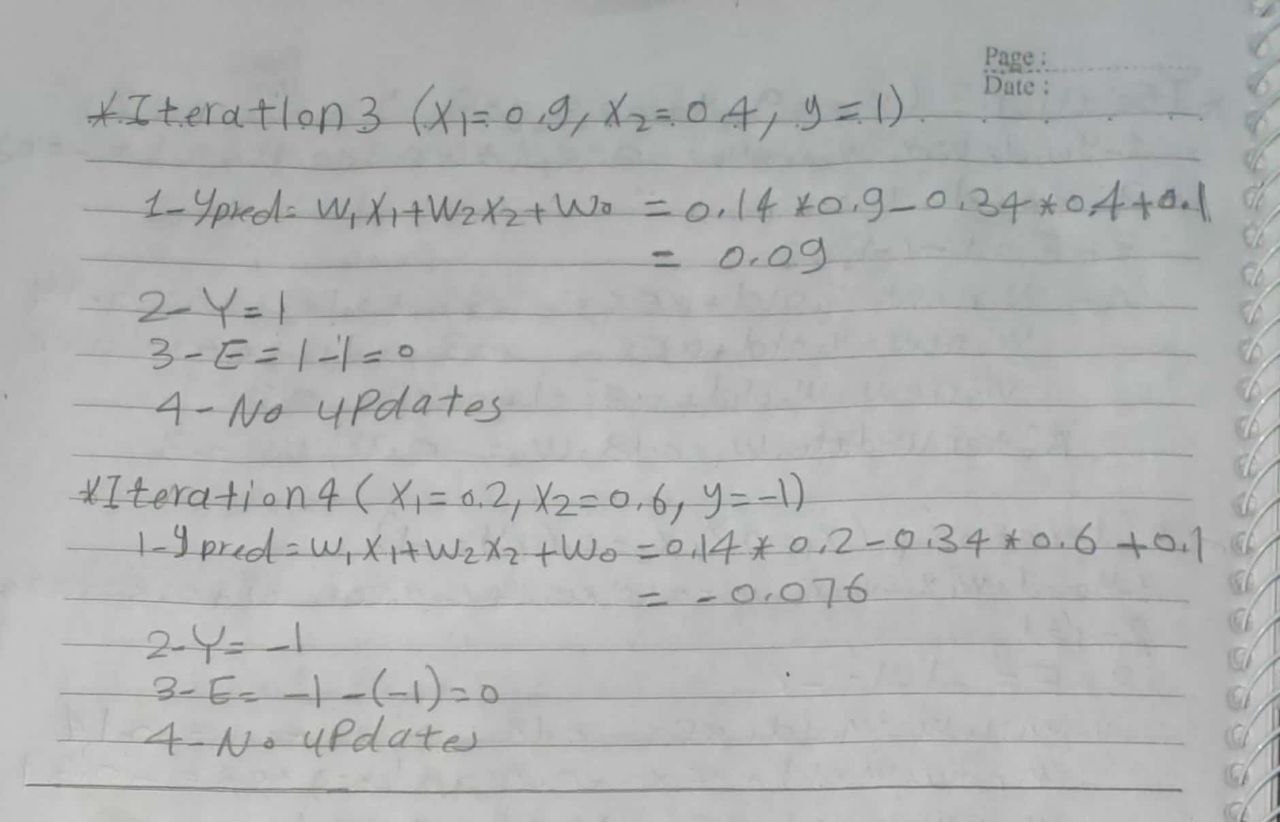 Page :
Date :
*Iteration 3 (X₁= 0.9, X₂= 0.4, y = 1)
1- ypred= W₁X₁+W₂X₂+W₀ = 0.14 *0.9-0.34*0.4+0.1
= 0.09
2- Y=1
3- E= 1-1=0
4- No uPdates
*Iteration 4 ( X₁= 0.2, X₂=0.6, y=-1)
1-ypred=W₁X₁+W₂X₂+W₀ =0.14 * 0.2-0.34*0.6 +0.1
= -0.076
2-Y= -1
3- E= -1-(-1)=0
4-No uPdates